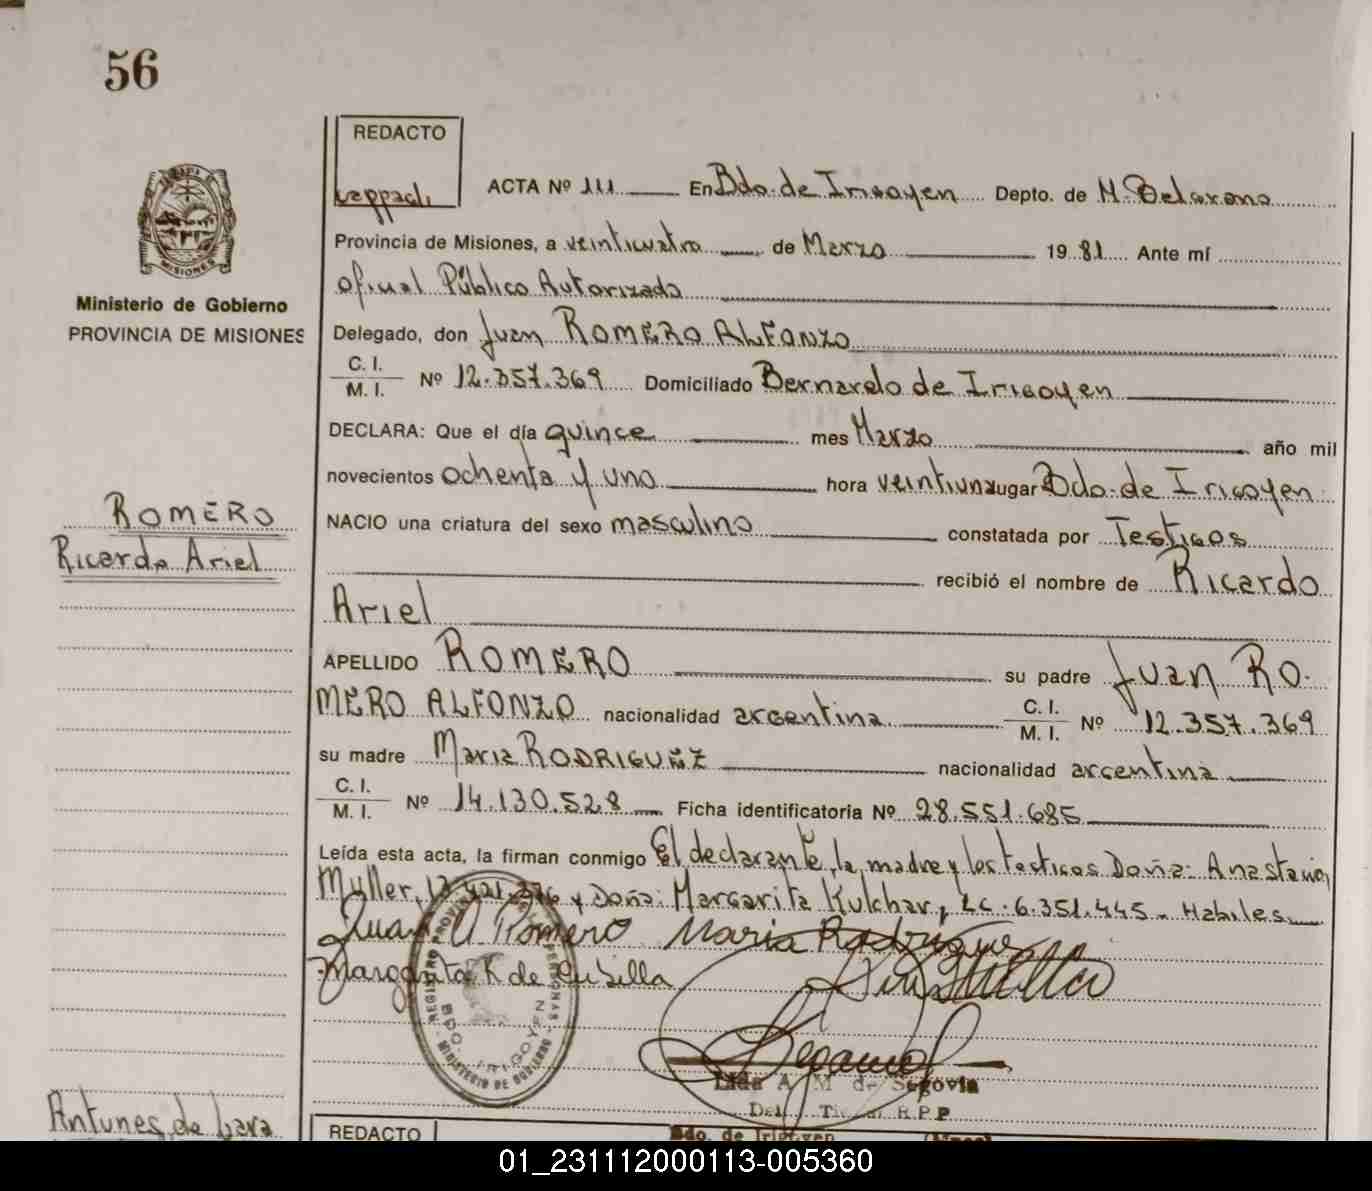 56
REDACTO
ACTA Nº 111 En Bdo. de Irigoyen Depto. de M. Belgrano
Provincia de Misiones, a veinticuatro de Marzo 19 81 Ante mí
Oficial Público Autorizado
MISIONES
Ministerio de Gobierno
PROVINCIA DE MISIONES
Delegado, don Juan ROMERO ALFONZO
C. I.
M. I. Nº 12.357.369 Domiciliado Bernardo de Irigoyen
DECLARA: Que el día quince mes Marzo año mil
novecientos ochenta y uno hora veintiuna lugar Bdo. de Irigoyen
ROMERO
Ricardo Ariel
NACIO una criatura del sexo masculino constatada por Testigos
recibió el nombre de Ricardo
Ariel
APELLIDO ROMERO su padre Juan RO-
MERO ALFONZO nacionalidad argentina C. I.
M. I. Nº 12.357.369
su madre Maria RODRIGUEZ nacionalidad argentina
C. I.
M. I. Nº 14.130.528 Ficha identificatoria Nº 28.551.685
Leída esta acta, la firman conmigo El declarante, la madre y los testigos Doña: Anastacia
Muller, y Doña: Margarita Kulchar, LC. 6.351.445. Habiles
Juan A Romero Maria Rodrigue
Margarita K de Cubilla
REGISTRO PROVINCIAL PERSONAS
BDO. IRIGOYEN
MINISTERIO DE GOBIERNO
Lida A M de Segovia
Del. Titular R.P.P
Bdo. de Irigoyen (Mnes)
Antunes de Lara
REDACTO
01_231112000113-005360